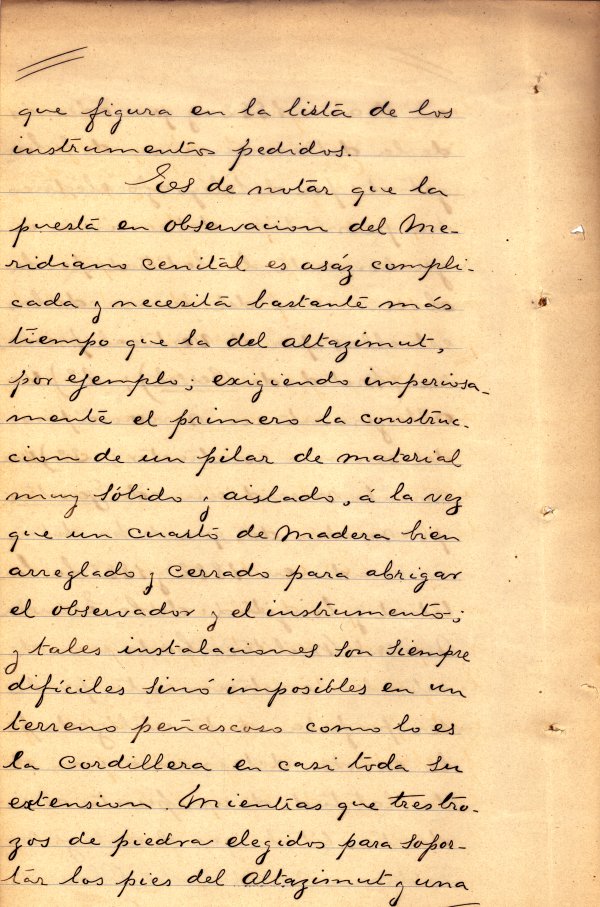 que figura en la lista de los
instrumentos pedidos.
Es de notar que la
puesta en observacion del Me-
ridiano cenital es asáz compli-
cada y necesita bastante más
tiempo que la del altazimut,
por ejemplo; exigiendo imperiosa-
mente el primero la construc-
cion de un pilar de material
muy sólido y aislado, á la vez
que un cuarto de madera bien
arreglado y cerrado para abrigar
el observador y el instrumento;
y tales instalaciones son siempre
difíciles sinó imposibles en un
terreno peñascoso como lo es
la Cordillera en casi toda su
extension. Mientras que tres tro-
zos de piedra elegidos para sopor-
tar los pies del altazimut y una